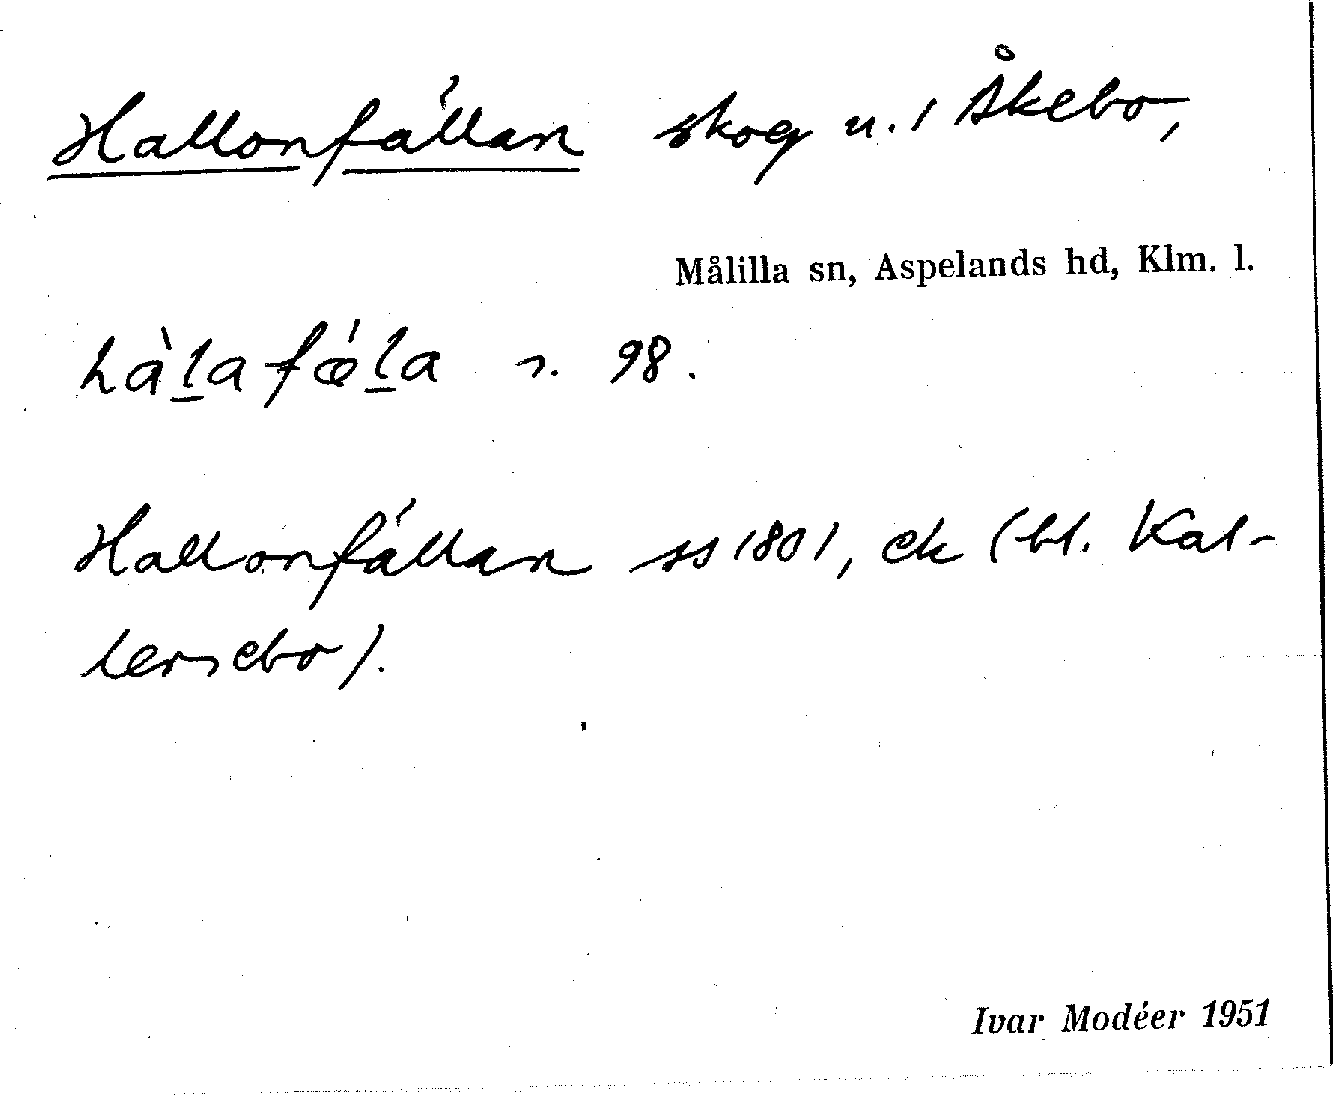 Hallonfállan skog u. 1 Åkebo,
Målilla sn, Aspelands hd, Klm. l.
hàl̠afǽl̠a s. 98.
Hallonfállan ss 1801, ek (bl. Kal-
lersebo).
Ivar Modéer 1951